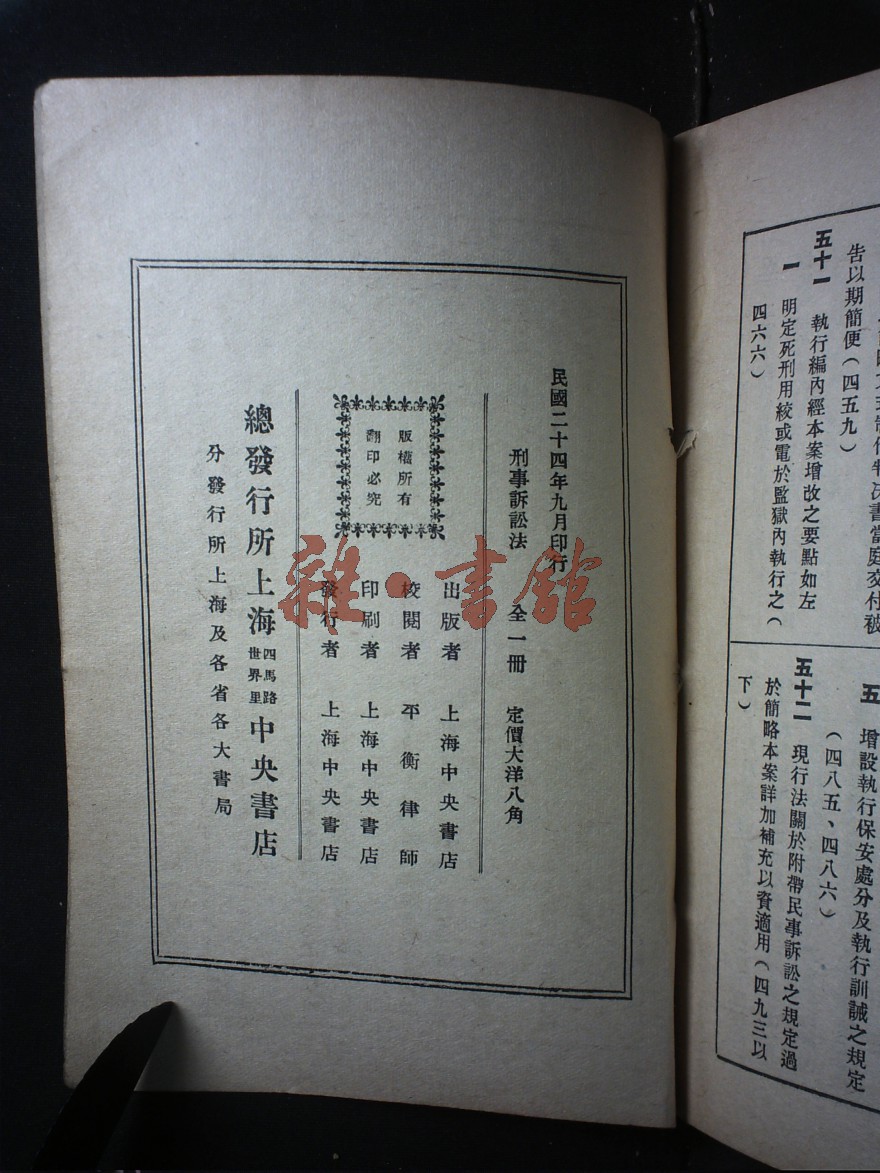 民國二十四年九月印行
刑事訴訟法 全一冊 定價大洋八角
版權所有
翻印必究
出版者 上海中央書店
校閱者 平衡律師
印刷者 上海中央書店
發行者 上海中央書店
總發行所上海四馬路世界里中央書店
分發行所上海及各省各大書局
雜·書館
告以期簡便（四五九）
五十一 執行編內經本案增改之要點如左
一 明定死刑用絞或電於監獄內執行之（
四六六）
五 增設執行保安處分及執行訓誡之規定
（四八五、四八六）
五十二 現行法關於附帶民事訴訟之規定過
於簡略本案詳加補充以資適用（四九三以
下）